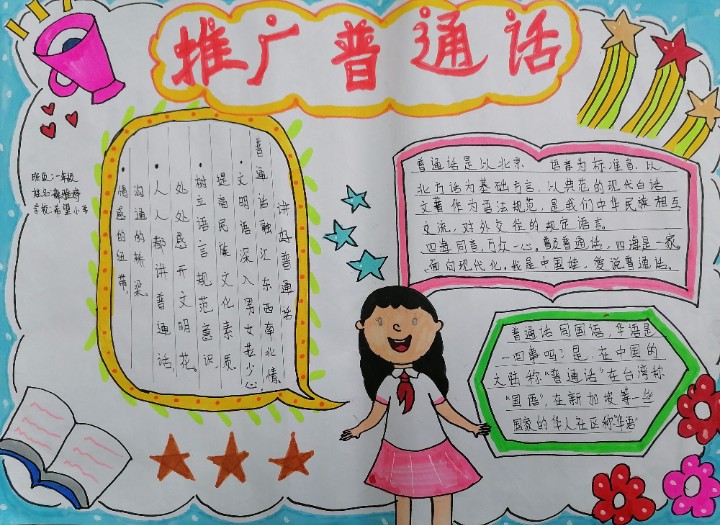 推广普通话
班级:一年级
学校:希望小学
讲好普通话
普通话融汇东西南北情。
·文明语深入男女老少心。
提高民族文化素质
·树立语言规范意识。
处处感开文明花。
·人人都讲普通话,
沟通的桥梁
情感的纽带。
普通话是以北京 语音为标准音,以
北方话为基础方言,以典范的现代白话
文著作为语法规范,是我们中华民族相互
交流,对外交往的规定语言。
四海同音,万众一心,普及普通话,四海是一家。
面向现代化,我是中国娃,爱说普通话。
普通话同国语,华语是
一回事吗?是,在中国的
大陆称“普通话”在台湾称
“国语”,在新加坡等一些
国家的华人社区称“华语”